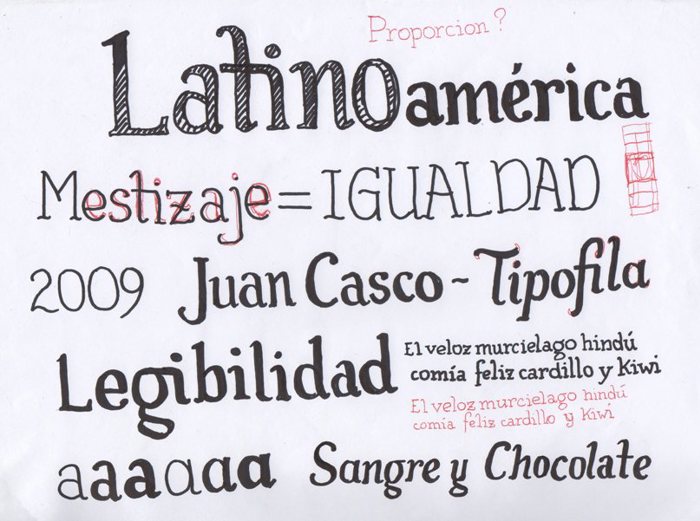 Proporcion?
Latinoamérica
Mestizaje = IGUALDAD
2009 Juan Casco - Tipofila
Legibilidad
El veloz murcielago hindú
comía feliz cardillo y Kiwi
El veloz murcielago hindú
comía feliz cardillo y Kiwi
aaaaaa Sangre y Chocolate